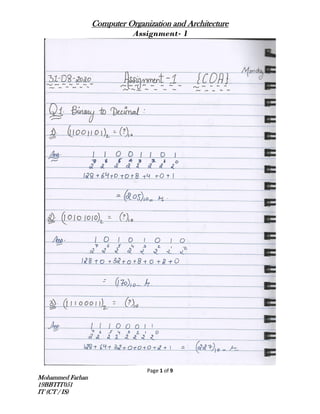 Computer Organization and Architecture
Assignment- 1
Monday
31-08-2020 Assignment-1 {COA}
Q1. Binary to Decimal :
1) (11001101)₂ = (?)₁₀
Ans 1 1 0 0 1 1 0 1
2⁷ 2⁶ 2⁵ 2⁴ 2³ 2² 2¹ 2⁰
128+64+0+0+8+4+0+1
= (205)₁₀
2) (10101010)₂ = (?)₁₀
Ans: 1 0 1 0 1 0 1 0
2⁷ 2⁶ 2⁵ 2⁴ 2³ 2² 2¹ 2⁰
128+0+32+0+8+0+2+0
= (170)₁₀
3) (11100011)₂ = (?)₁₀
Ans 1 1 1 0 0 0 1 1
2⁷ 2⁶ 2⁵ 2⁴ 2³ 2² 2¹ 2⁰
128+64+32+0+0+0+2+1 = (227)₁₀
Page 1 of 9
Mohammed Farhan
19BBTIT051
IT (CT / IS)